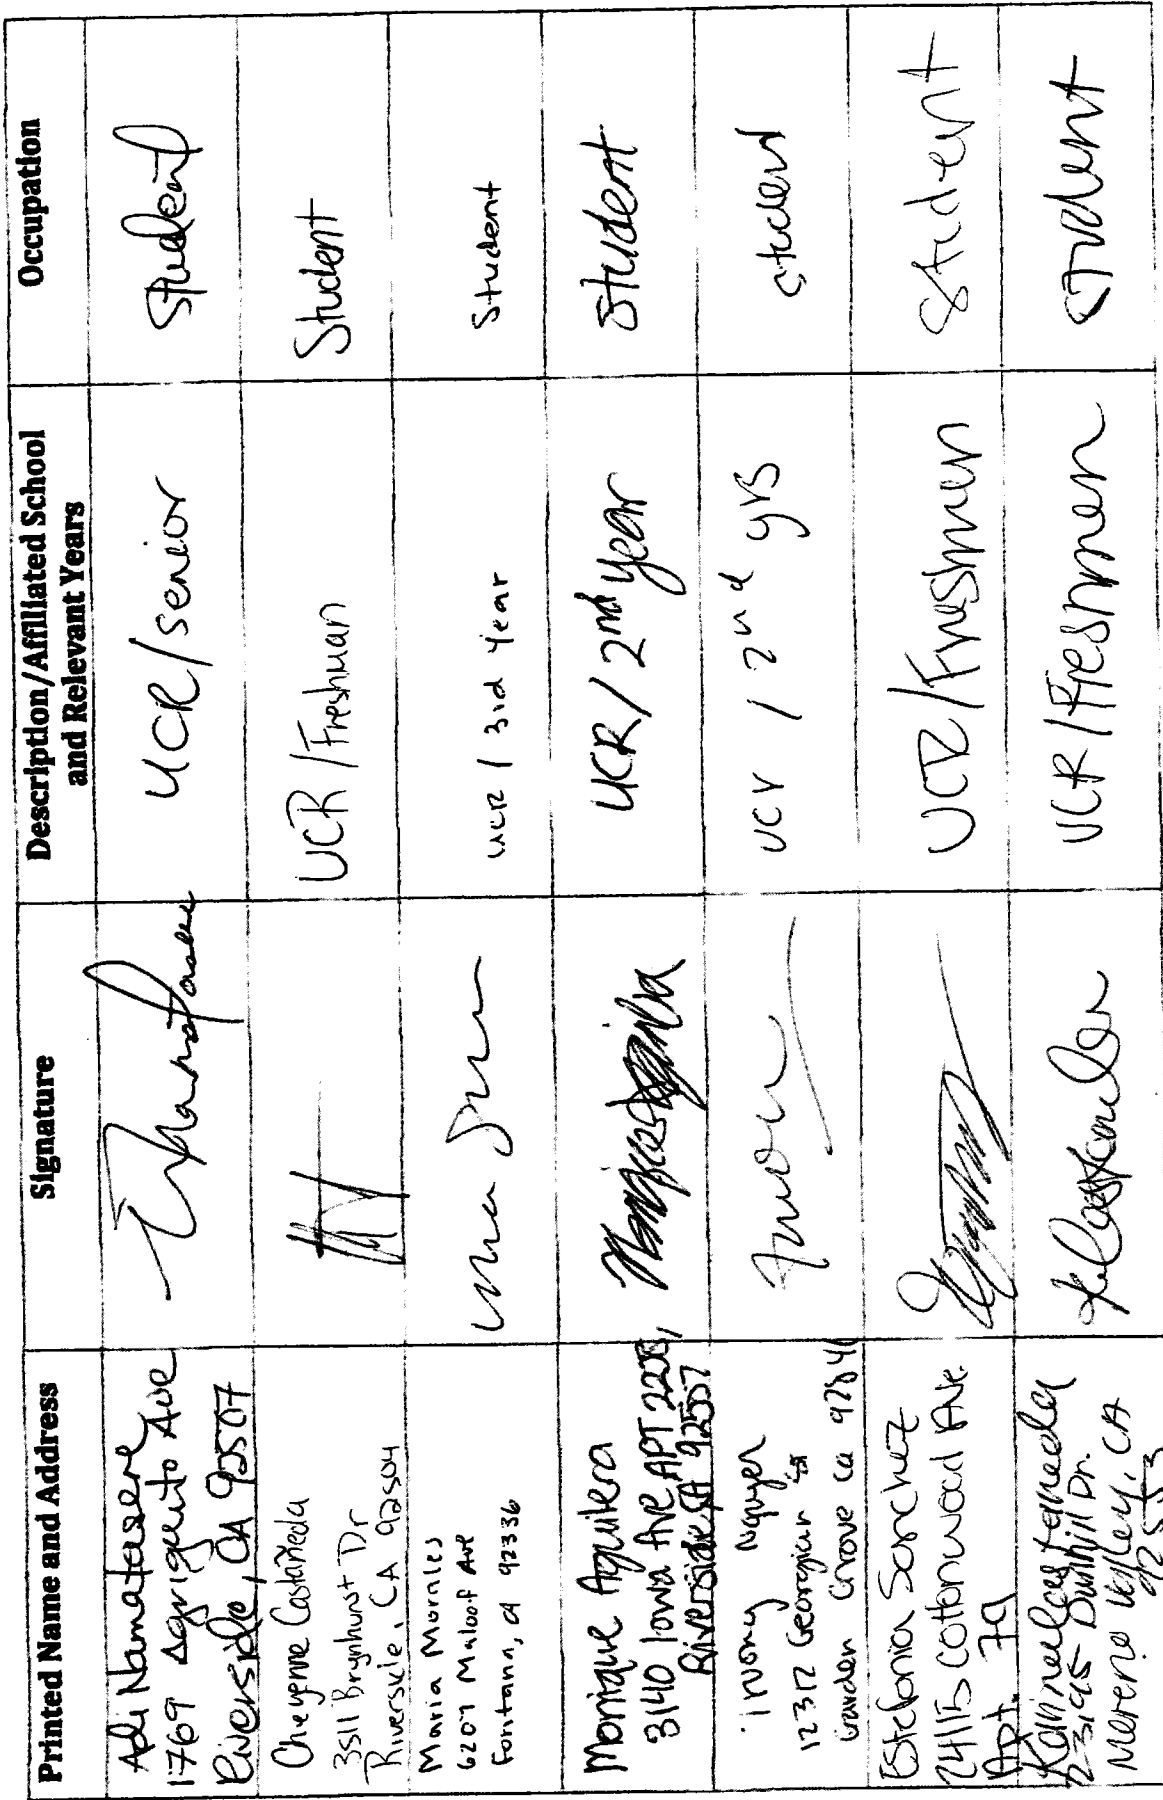 Printed Name and Address
Signature
Description/Affiliated School
and Relevant Years
Occupation
Adi Namatasere
1769 Agrigento Ave
Riverside, CA 92507
UCR/senior
Student
Cheyenne Castañeda
3511 Brynhurst Dr
Riverside, CA 92504
UCR/Freshman
Student
Maria Morales
6207 Maloof Ave
Fontana, CA 92336
UCR / 3rd Year
Student
Monique Aguilera
3140 Iowa Ave APT 220B,
Riverside, CA 92507
UCR/2nd year
Student
Nguyen
12312 Georgian St
Garden Grove Ca 92841
UCr / 2nd yrs
student
Estefonia Sanchez
24115 Cottonwood Ave.
Apt. 79
UCR/Freshmen
Student
23195 Dunhill Dr.
Moreno Valley, CA
92553
UCR/Freshmen
student